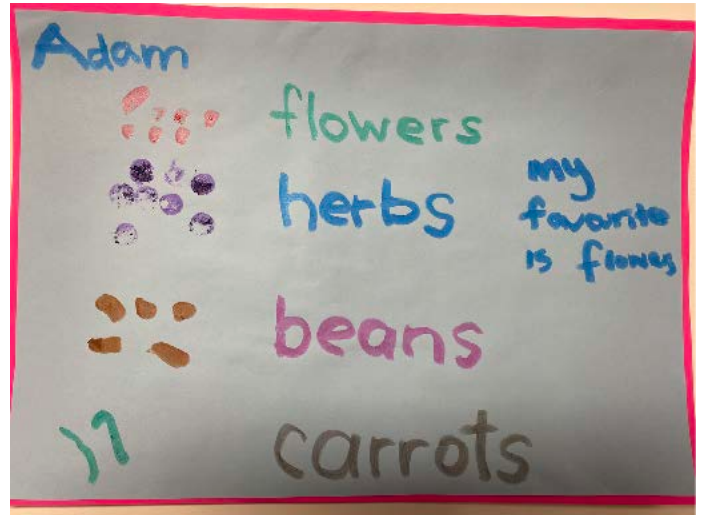 Adam
flowers
herbs
my
favorite
is flowes
beans
carrots